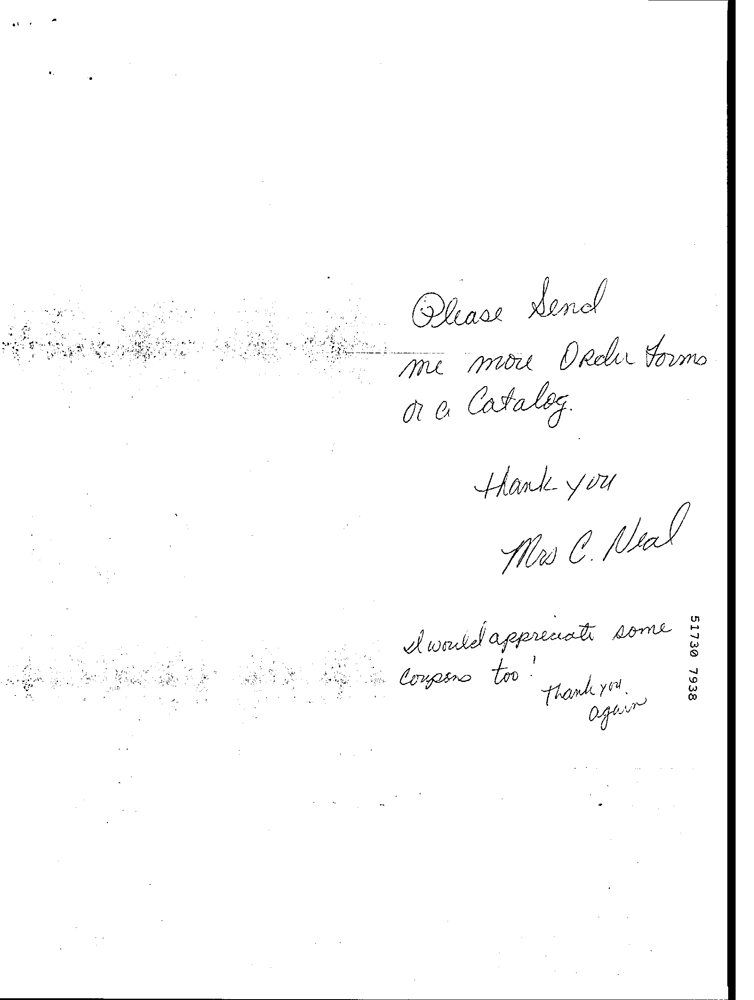 Please Send
me more Order Forms
or a Catalog.
thank you
Mrs C. Neal
I would appreciate some
Coupons too!
Thank you.
again
51730 7938